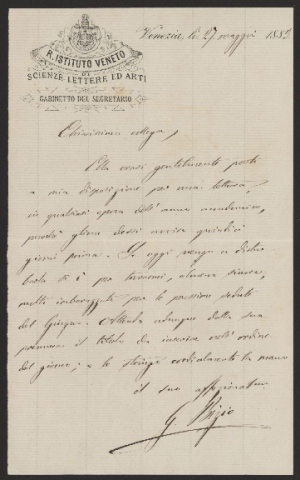 R. ISTITUTO VENETO
DI
SCIENZE LETTERE ED ARTI
GABINETTO DEL SEGRETARIO
Venezia, le 27 maggio 188
Chiarissimo collega,
Ella erasi gentilmente posto
a mia disposizione per una lettura,
in qualsiasi epoca dell'anno accademico,
purchè gliene dassi avviso quindici
giorni prima. Se oggi vengo a dirle
è per trovarmi, alcuna
molto imbarazzato per le prossime sedute
del Giugno. Attendo adunque dalla sua
il titolo da inserire nell'ordine
del giorno; e le stringo cordialmente la mano
il suo affezionatissimo
G. Bizio